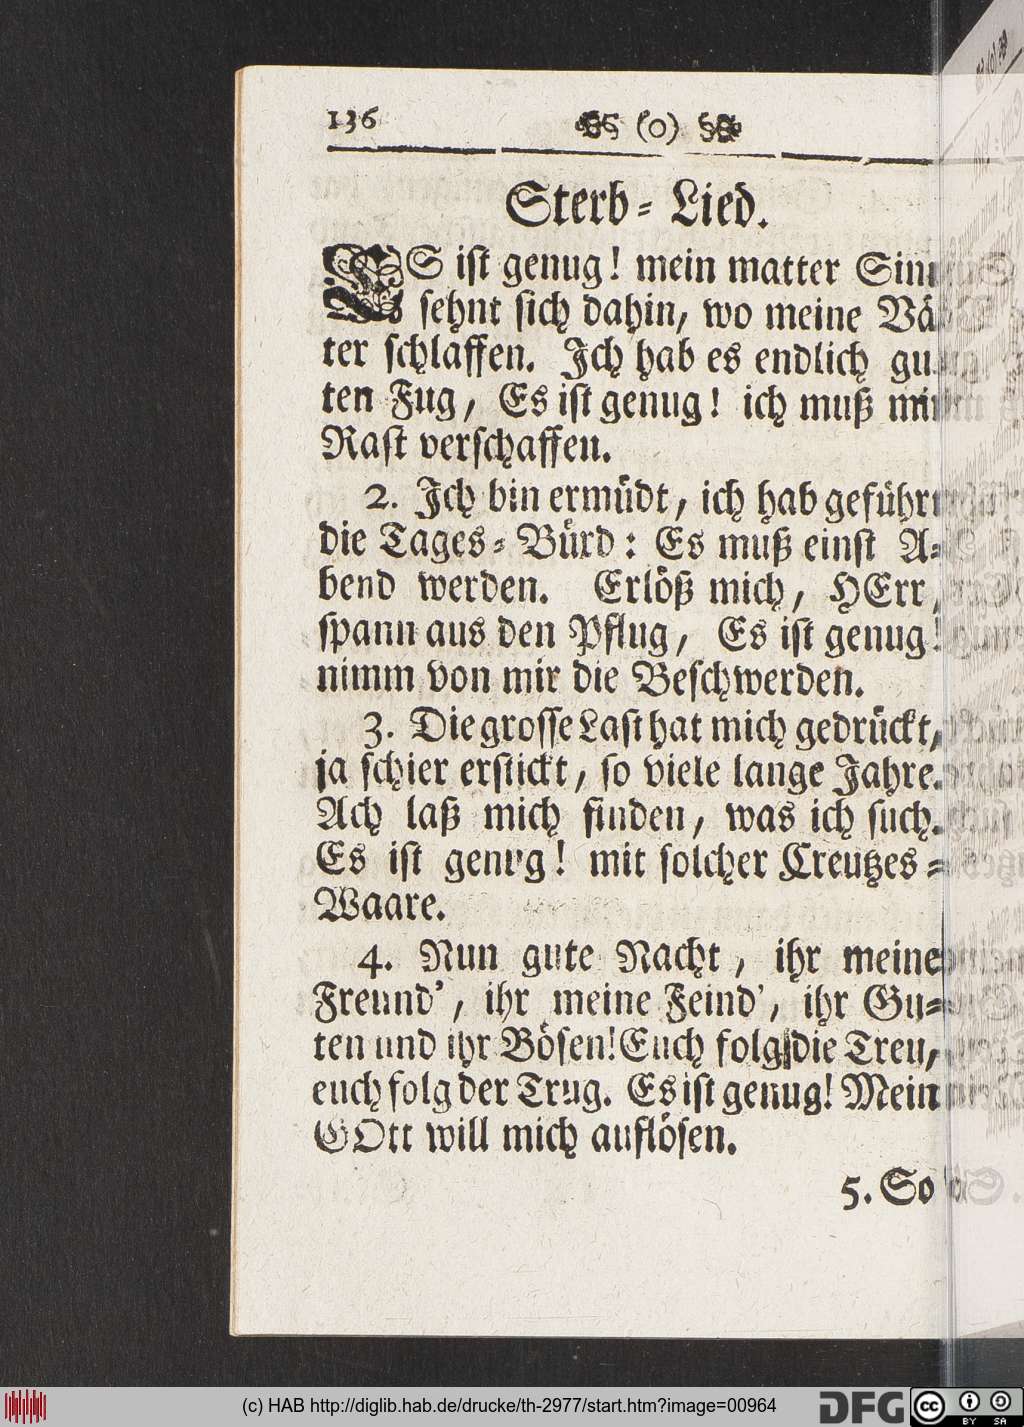 136 (o)
Sterb⸗Lied.
ES iſt genug! mein matter Sinn
ſehnt ſich dahin, wo meine Vä⸗
ter ſchlaffen. Ich hab es endlich gu⸗
ten Fug, Es iſt genug! ich muß mir
Raſt verſchaffen.
2. Ich bin ermüdt, ich hab geführt
die Tages⸗Bürd: Es muß einſt A⸗
bend werden. Erlöß mich, HErr,
ſpann aus den Pflug, Es iſt genug!
nimm von mir die Beſchwerden.
3. Die groſſe Laſt hat mich gedrückt,
ja ſchier erſtickt, ſo viele lange Jahre.
Ach laß mich finden, was ich ſuch.
Es iſt genug! mit ſolcher Creutzes⸗
Waare.
4. Nun gute Nacht, ihr meine
Freund’, ihr meine Feind’, ihr Gu⸗
ten und ihr Böſen! Euch folg die Treu,
euch folg der Trug. Es iſt genug! Mein
GOtt will mich auflöſen.
5. So
(c) HAB http://diglib.hab.de/drucke/th-2977/start.htm?image=00964
DFG
cc BY SA